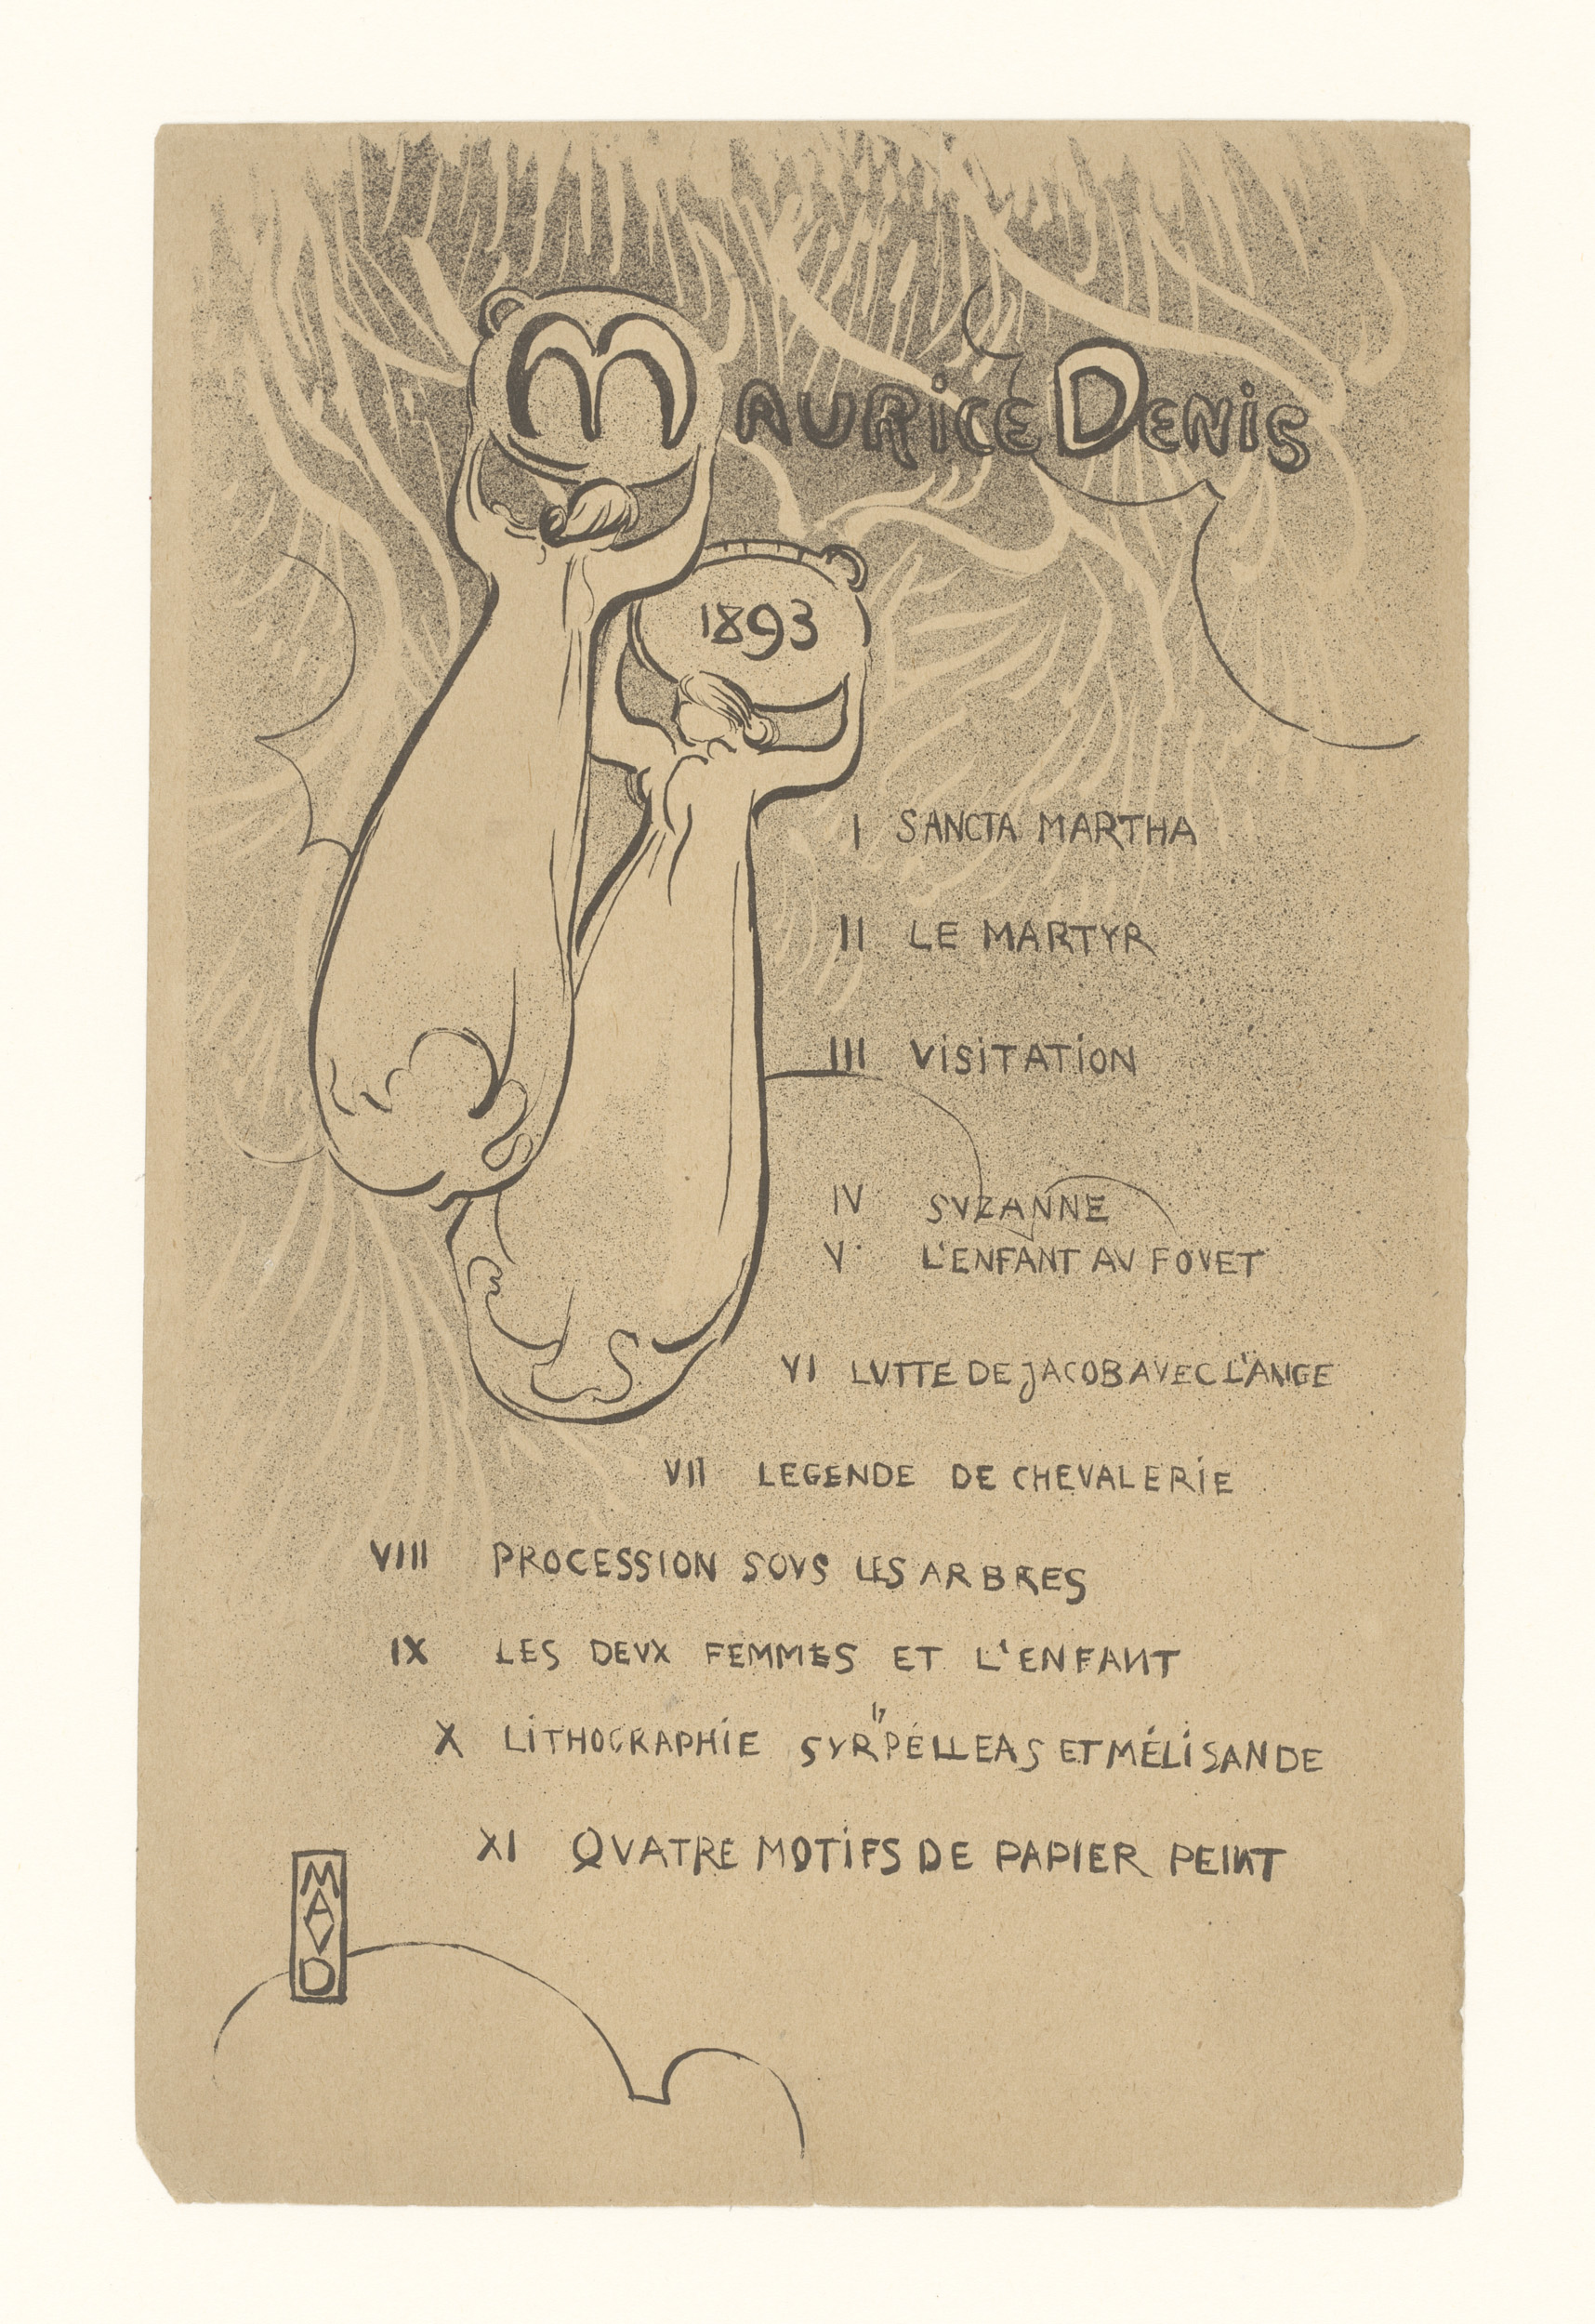 MAURiCE DENiS
1893
I SANCTA MARTHA
II LE MARTYR
III ViSiTATiON
IV SVZANNE
V· L'ENFANT AV FOVET
VI LVTTE DE JACOB AVEC L'ANGE
VII LEGENDE DE CHEVALERiE
VIII PROCESSION SOVS LES ARBRES
IX LES DEVX FEMMES ET L'ENFANT
X LiTHOGRAPHiE SVR "PÉLLEAS ET MÉLiSANDE
XI QVATRE MOTiFS DE PAPIER PEINT
MAVD